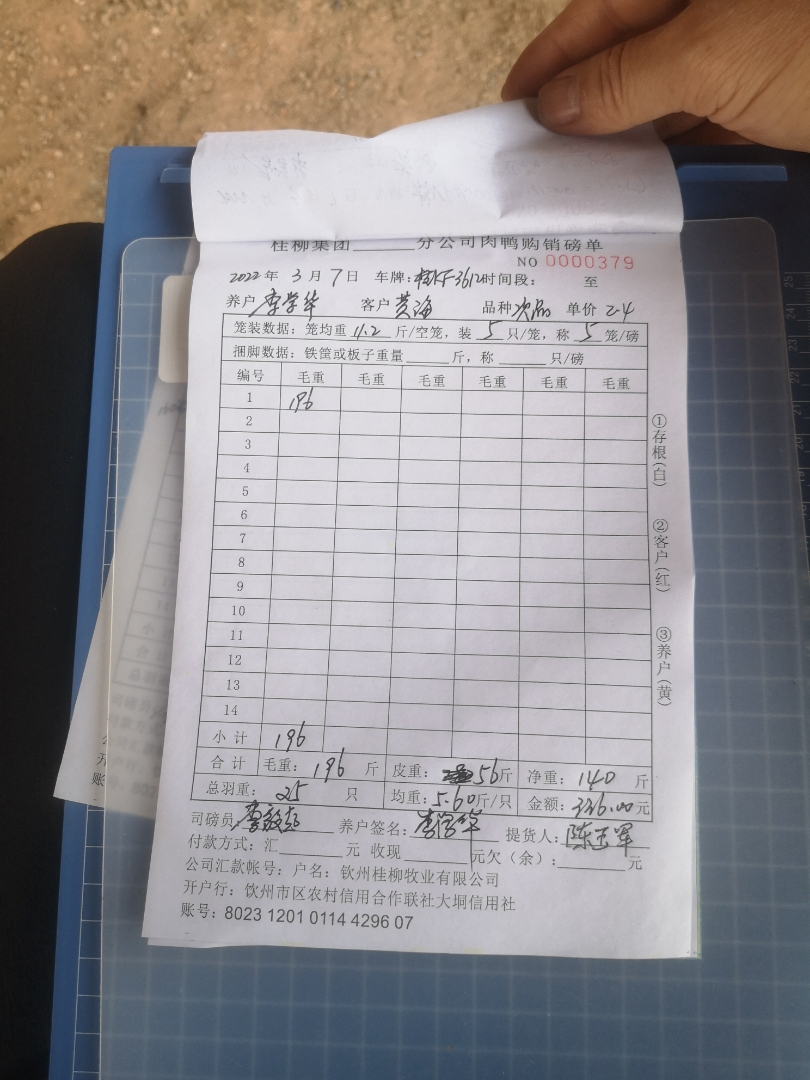 桂柳集团______分公司肉鸭购销磅单
NO 0000379
2022 年 3 月 7 日 车牌: 桂KF3612 时间段: 至
养户 李学华 客户 黄海 品种 次品 单价 2.4
笼装数据: 笼均重 11.2 斤/空笼, 装 5 只/笼, 称 5 笼/磅
捆脚数据: 铁筐或板子重量______斤, 称______只/磅
编号 毛重 毛重 毛重 毛重 毛重 毛重
1 196
2
3
4
5
6
7
8
9
10
11
12
13
14
小 计 196
合 计 毛重: 196 斤 皮重: 56斤 净重: 140 斤
总羽重: 25 只 均重: 5.60斤/只 金额: 336.00元
司磅员: 养户签名: 李学华 提货人: 陈玉军
付款方式: 汇______元 收现______元欠（余）: ______元
公司汇款帐号: 户名: 钦州桂柳牧业有限公司
开户行: 钦州市区农村信用合作联社大垌信用社
账号: 8023 1201 0114 4296 07
①存根(白)
②客户(红)
③养户(黄)